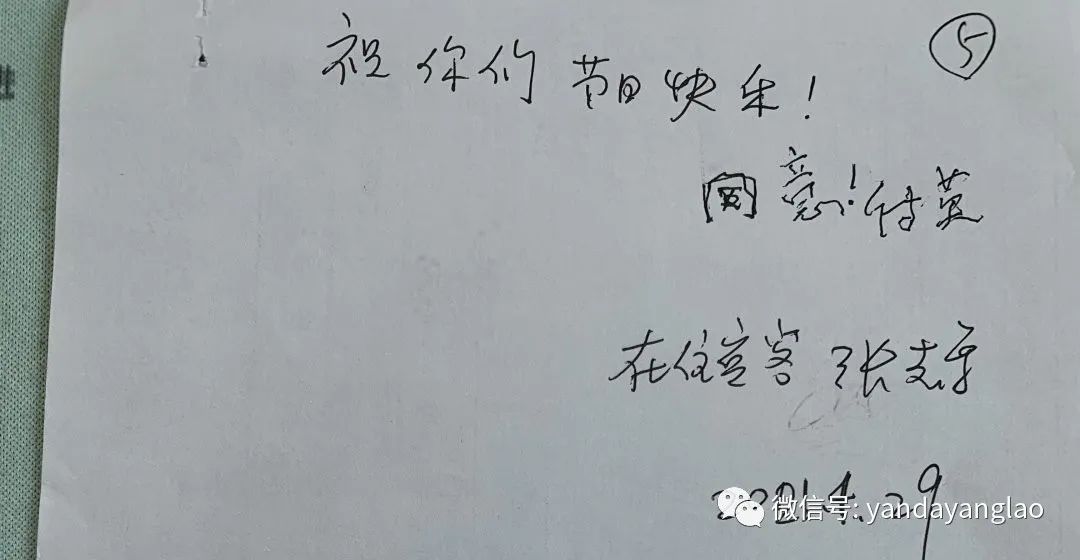 ⑤
祝你们节日快乐!
同意!传英
在住宾客 张志平
2021.4.29
微信号: yandayanglao